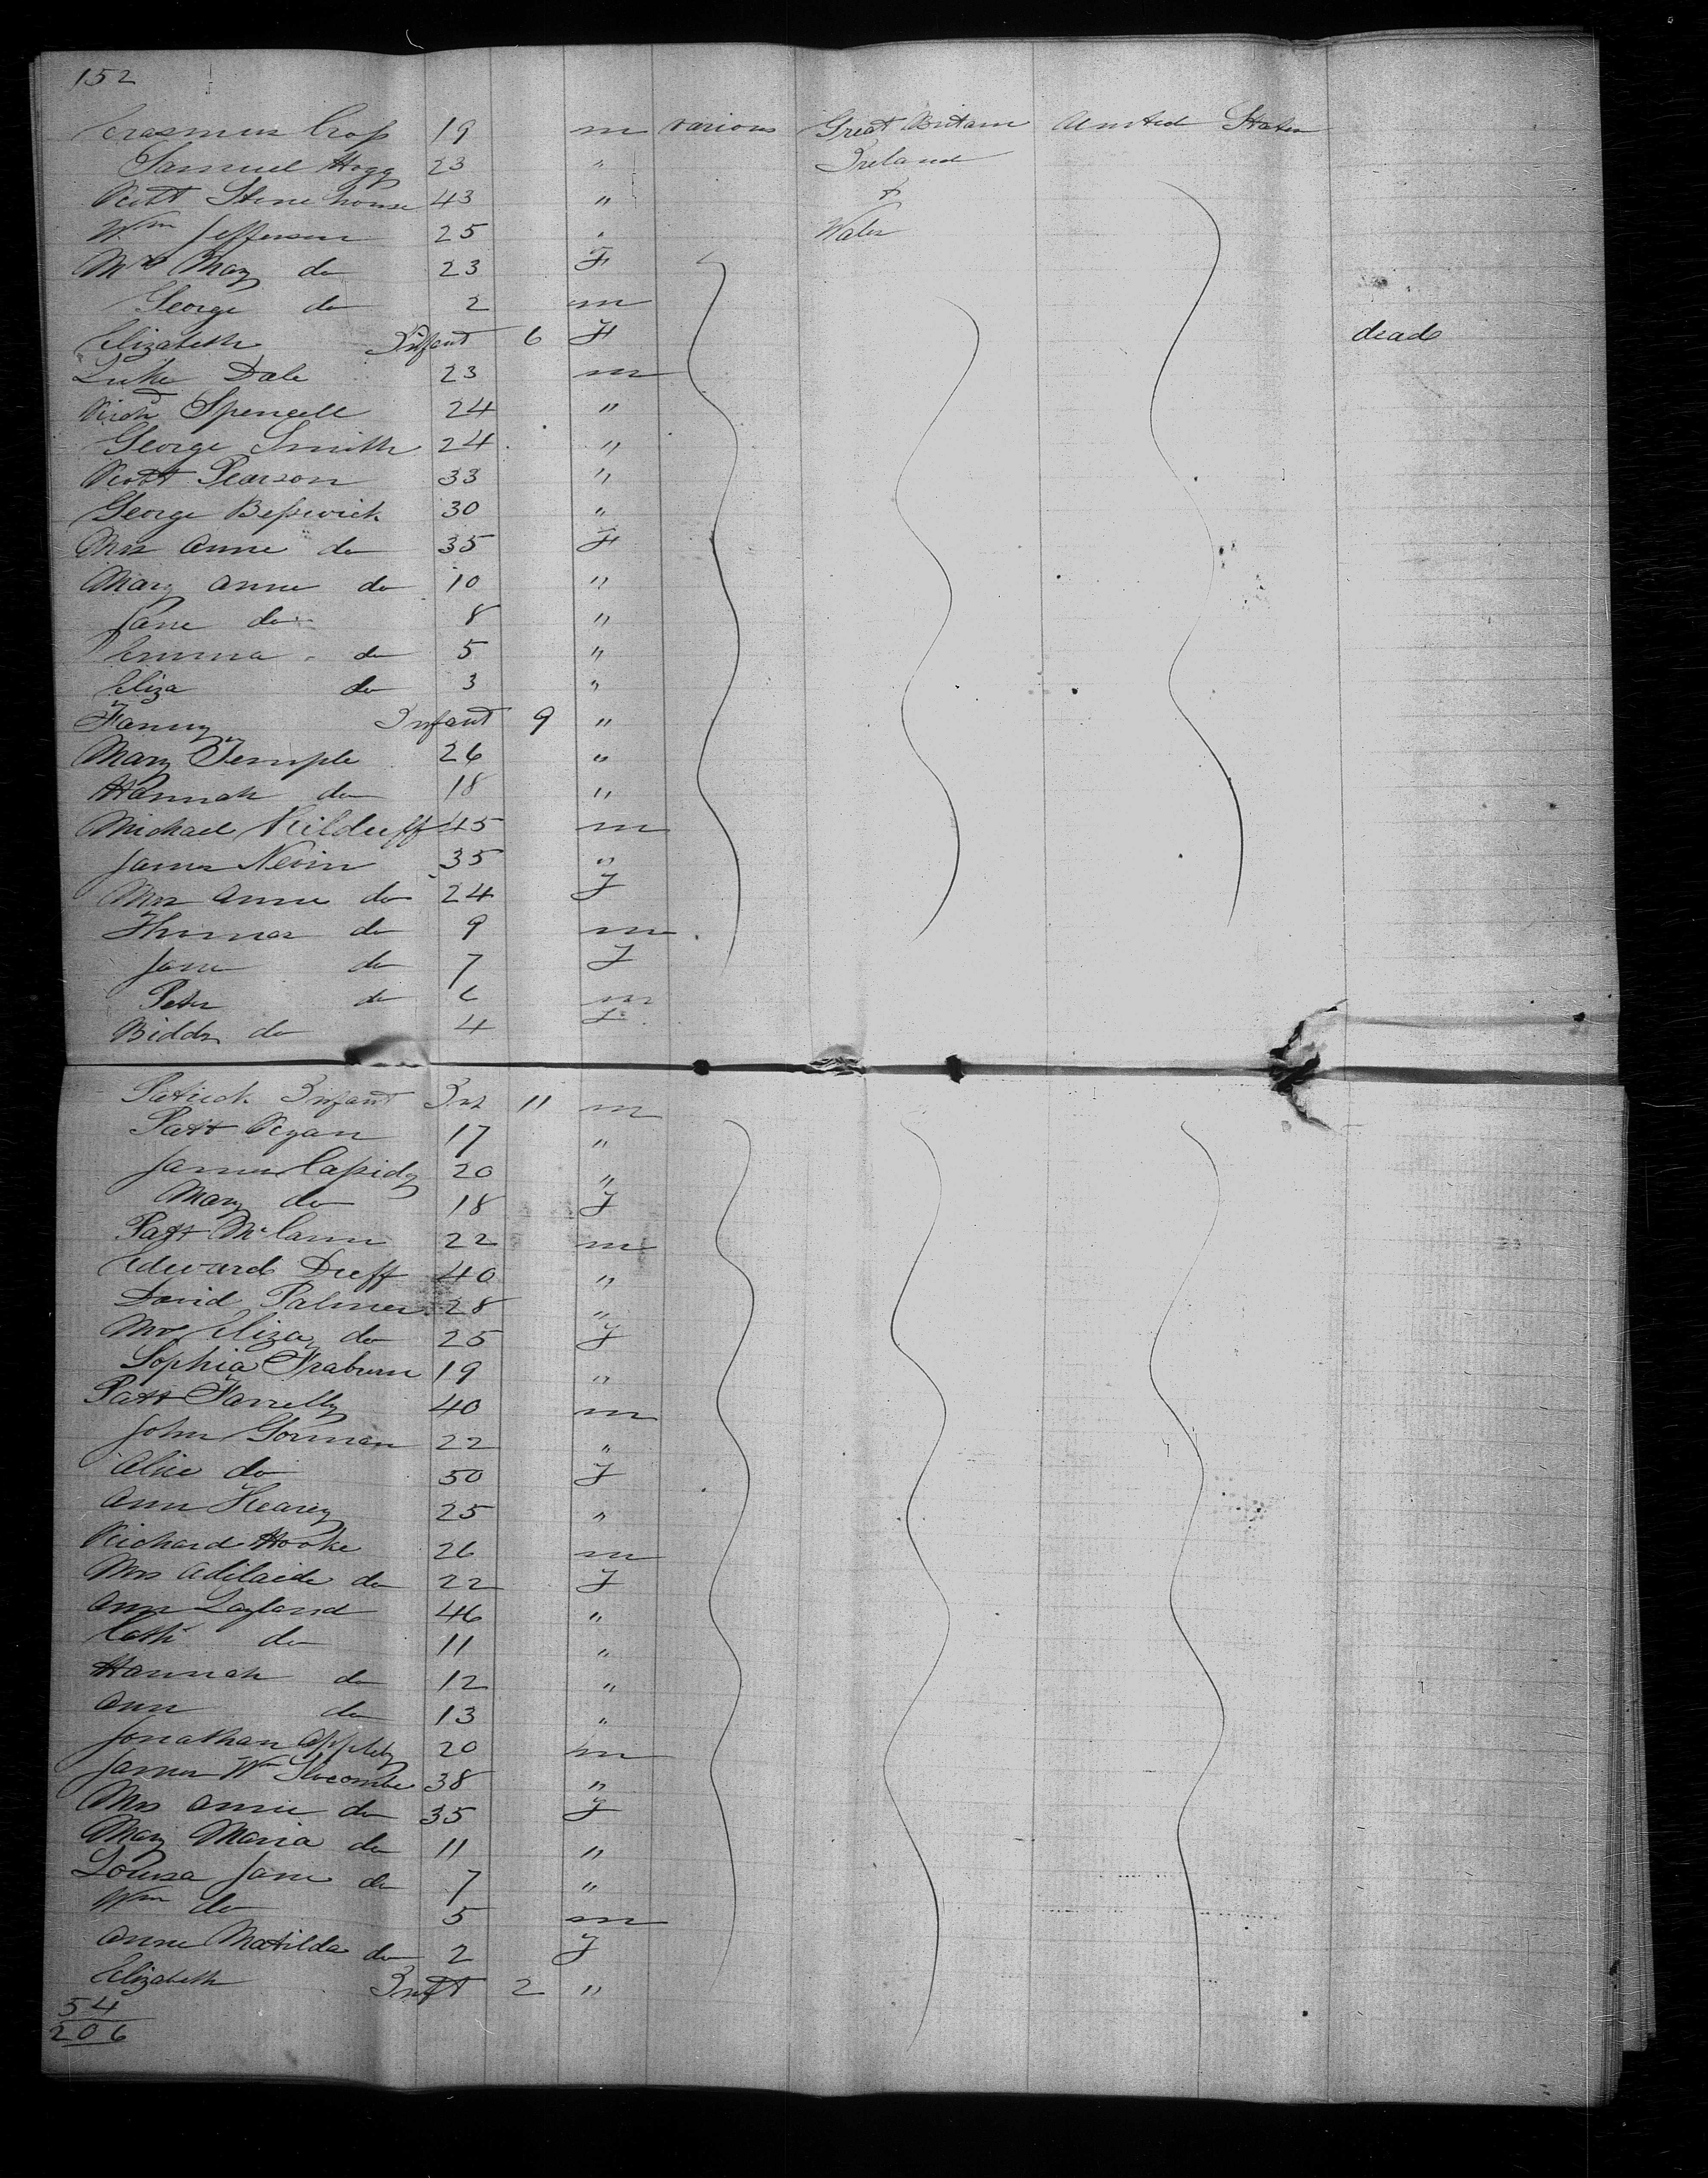 152
Erasmus Cross 19 m various Great Britain United States
Samuel Hogg 23 " Ireland
Robt Stenehouse 43 " &
Wm Jefferson 25 " Wales
Mrs Mary do 23 F
George do 2 m
Elizabeth Infant 6 F dead
Luke Dale 23 m
Richd Spencell 24 "
George Smith 24 "
Robt Pearson 33 "
George Beswick 30 "
Mrs Anne do 35 F
Mary Anne do 10 "
Jane do 8 "
Emma do 5 "
Eliza do 3 "
Fanny Infant 9 "
Mary Temple 26 "
Hannah do 18 "
Michael Kilduff 45 m
James Nevin 35 "
Mrs Anne do 24 F
Thomas do 9 m
Jane do 7 F
Peter do 6 m
Biddy do 4 F
Patrick Infant Inf 11 m
Patt Regan 17 "
James Cassidy 20 "
Mary do 18 F
Patt McCann 22 m
Edward Duff 40 "
David Palmer 28 "
Mrs Eliza do 25 F
Sophia Fraburn 19 "
Patt Farrelly 40 m
John Gorman 22 "
Alice do 50 F
Ann Hearey 25 "
Richard Hooke 26 m
Mrs Adelaide do 22 F
Ann Layland 46 "
Cath do 11 "
Hannah do 12 "
Ann do 13 "
Jonathan Appleby 20 m
James Wm Slocombe 38 "
Mrs Annie do 35 F
Mary Maria do 11 "
Louisa Jane do 7 "
Wm do 5 m
Anne Matilda do 2 F
Elizabeth Inft 2 "
54
206